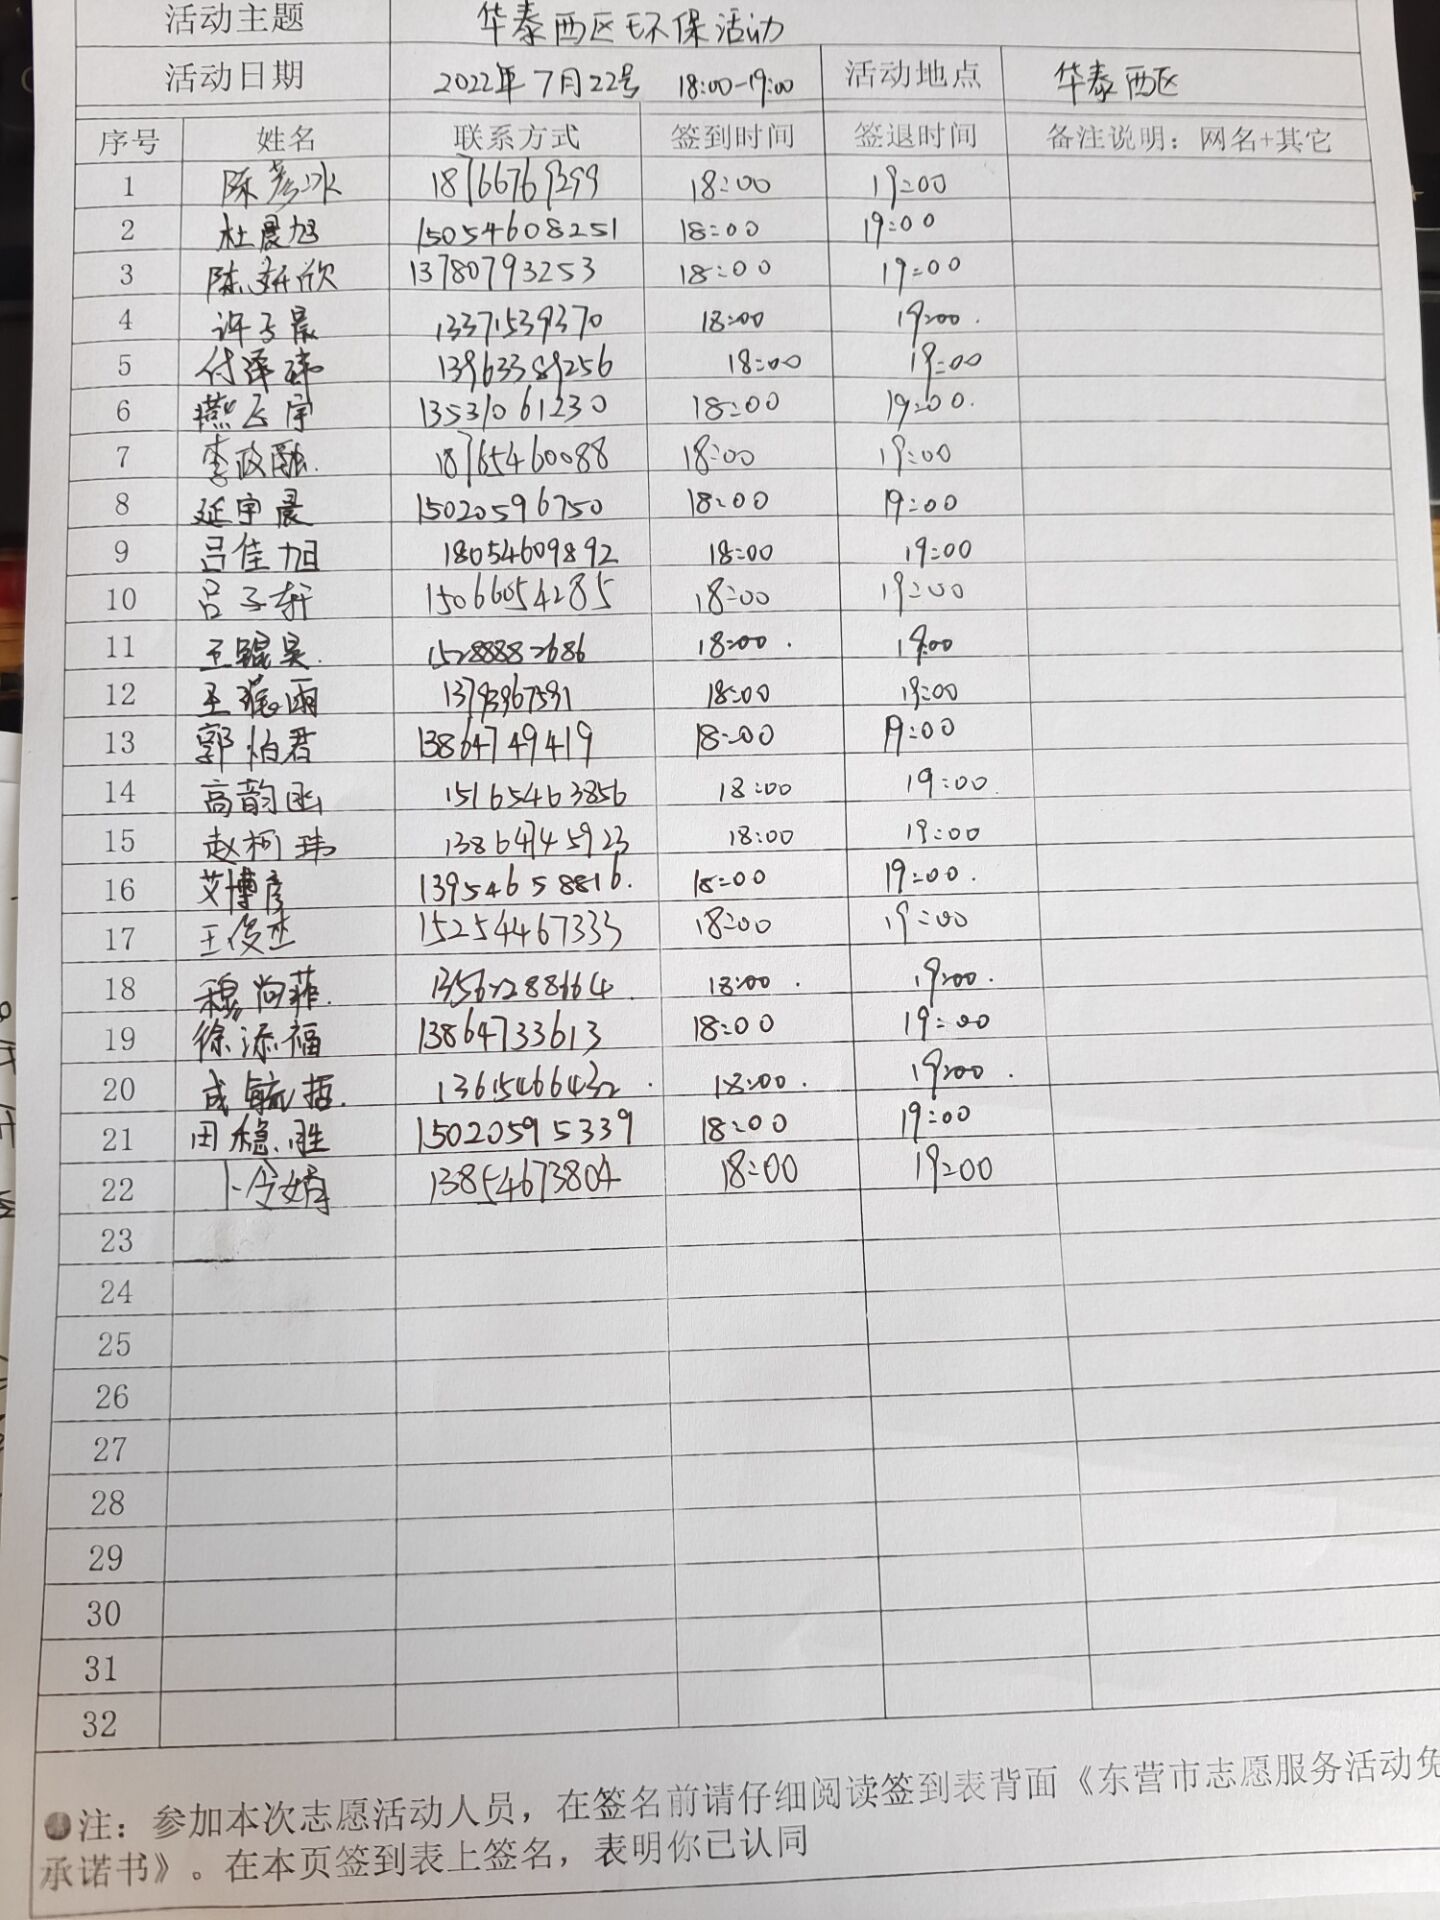 活动主题 华泰西区环保活动
活动日期 2022年7月22号 18:00-19:00 活动地点 华泰西区
序号 姓名 联系方式 签到时间 签退时间 备注说明：网名+其它
1 陈彦冰 18766769299 18:00 19:00
2 杜晨旭 15054608251 18:00 19:00
3 陈妍欣 13780793253 18:00 19:00
4 许子晨 13371539370 18:00 19:00.
5 付泽玮 13963389256 18:00 19:00
6 燕飞宇 13531061230 18:00 19:00.
7 李政融. 18765460088 18:00 19:00
8 延宇晨 15020596750 18:00 19:00
9 吕佳旭 18054609892 18:00 19:00
10 吕子轩 15066054285 18:00 19:00
11 王锟昊. 15288882686 18:00. 19:00
12 王雨 18:00 19:00
13 郭怡君 13864749419 18:00 19:00
14 高韵函 15165463856 18:00 19:00.
15 赵柯玮 13864745923 18:00 19:00
16 艾博彦 13954658816. 18:00 19:00.
17 王俊杰 15254467333 18:00 19:00
18 穆尚菲. 13567288664. 18:00. 19:00.
19 徐添福 13864733613 18:00 19:00
20 成毓哲. 13615466432. 18:00. 19:00.
21 田稳胜 15020595339 18:00 19:00
22 卜令婧 13854673804 18:00 19:00
23
24
25
26
27
28
29
30
31
32
●注：参加本次志愿活动人员，在签名前请仔细阅读签到表背面《东营市志愿服务活动免
承诺书》。在本页签到表上签名，表明你已认同